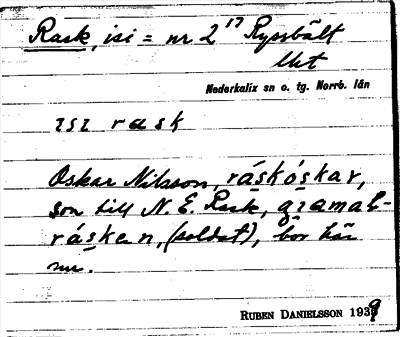 Rask, isi = nr 2¹⁷ Ryssbält
Ubt
Nederkalix sn o. tg. Norrb. län
ısı rask
Oskar Nilsson, ráskóskar,
son till N. E. Rask, gamal-
ráskan, (soldat), bor här
nu.
RUBEN DANIELSSON 1939